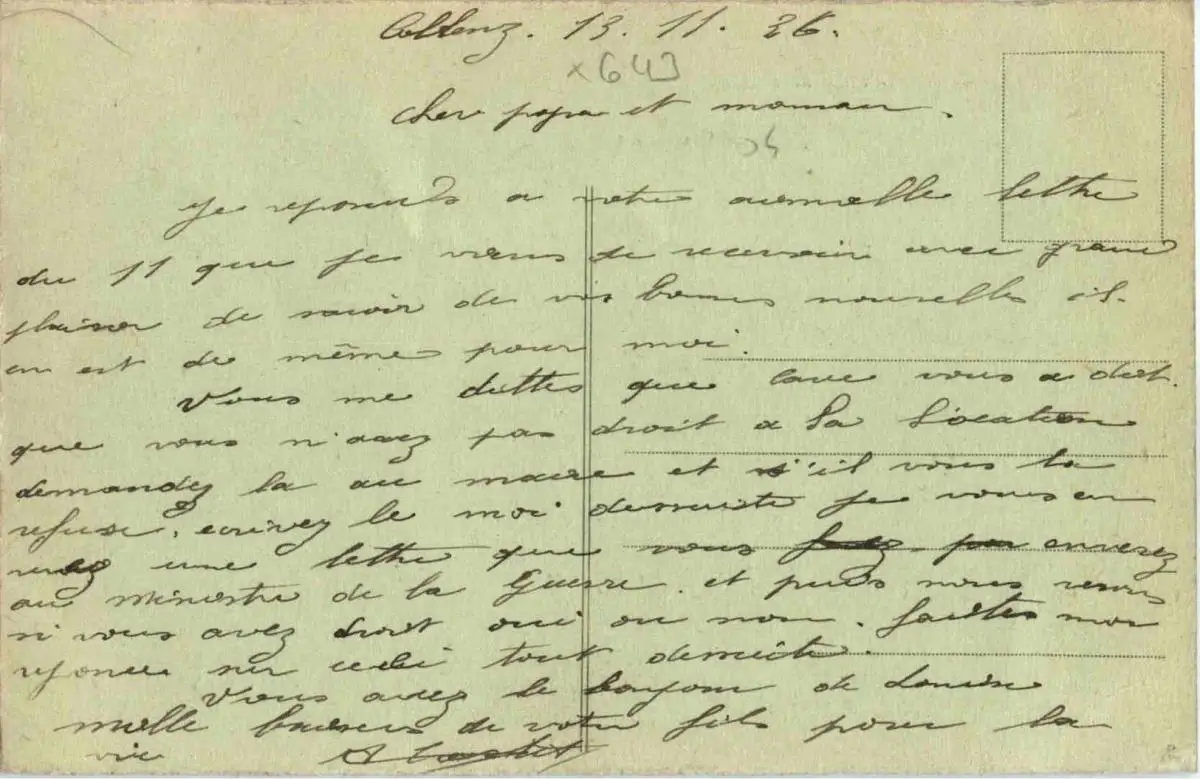 Coblenz. 13. 11. 26.
x643
cher papa et maman.
Je reponds a votre lettre
du 11 que je viens de recevoir avec grand
plaisir de savoir de vos bonnes nouvelles il
en est de même pour moi.
Vous me dittes que vous a dit.
que vous n'avez pas droit a la location
demandez la au maire et s'il vous la
refuse. ecrivez le moi desuite je vous en
une lettre que vous enverez
au ministre de la Guerre. et puis nous verons
si vous avez droit oui ou non. faittes moi
reponse sur cela tout desuite.
Vous avez le bonjour de Louise
mille baisers de votre fils pour la
vie